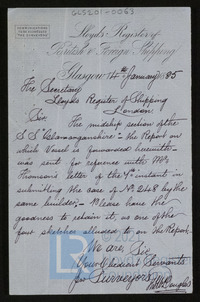 GLS201-0063
Lloyd's Register of
British & Foreign Shipping
Glasgow 14th January 1885
The Secretary
Lloyds Register of Shipping
London
Sir,
The midship section of the
S.S. "Clamanganshire" - the Report on
which Vessel is forwarded herewith -
was sent for reference with Mr
Thomson's letter of the 9th instant in
submitting the case of No 248 by the
same builder, - Please have the
goodness to retain it, as one of the
four sketches alluded to on the Report
We are, Sir,
Your Obedient Servants
for Surveyors